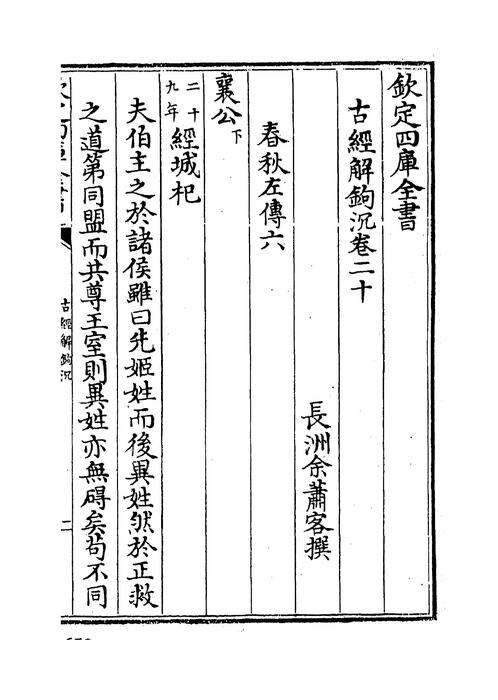 欽定四庫全書
古經解鉤沉卷二十
長洲余蕭客撰
春秋左傳六
襄公下
二十九年經城杞
夫伯主之於諸侯雖曰先姬姓而後異姓然於正救
之道第同盟而共尊王室則異姓亦無碍矣苟不同
古經解鉤沉
二